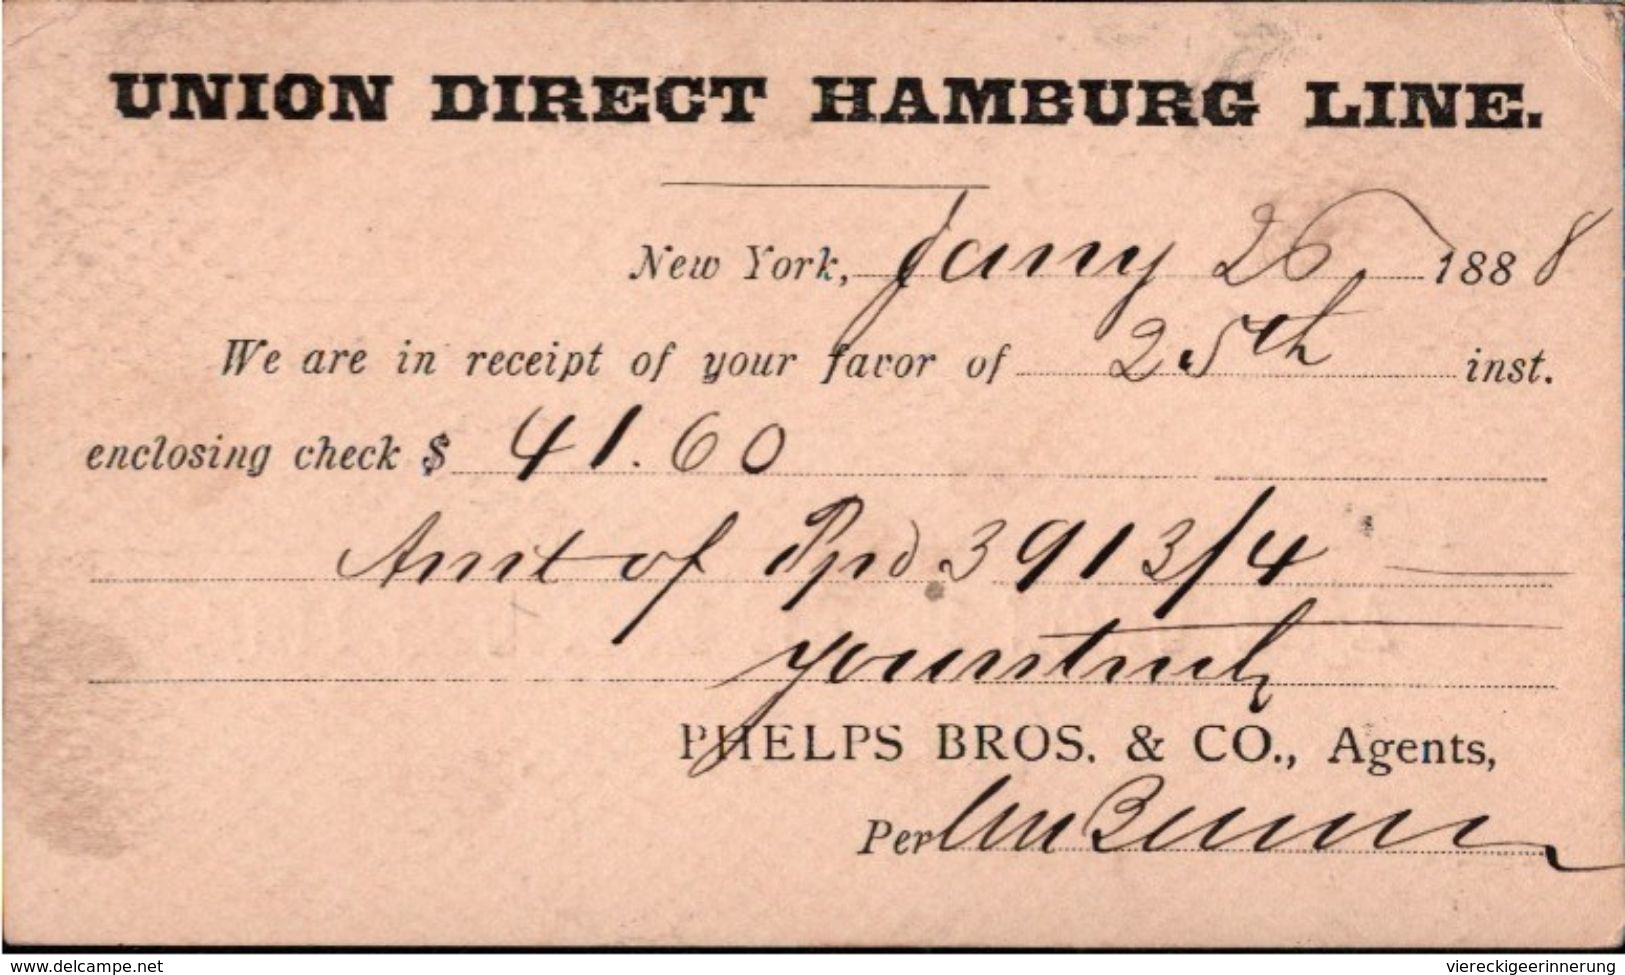 UNION DIRECT HAMBURG LINE.
New York, Jany 26, 1888
We are in receipt of your favor of 25th inst.
enclosing check $ 41.60
Amt of Ppd 3913/4
yours truly
PHELPS BROS. & CO., Agents,
Per Wm
www.delcampe.net
viereckigeerinnerung